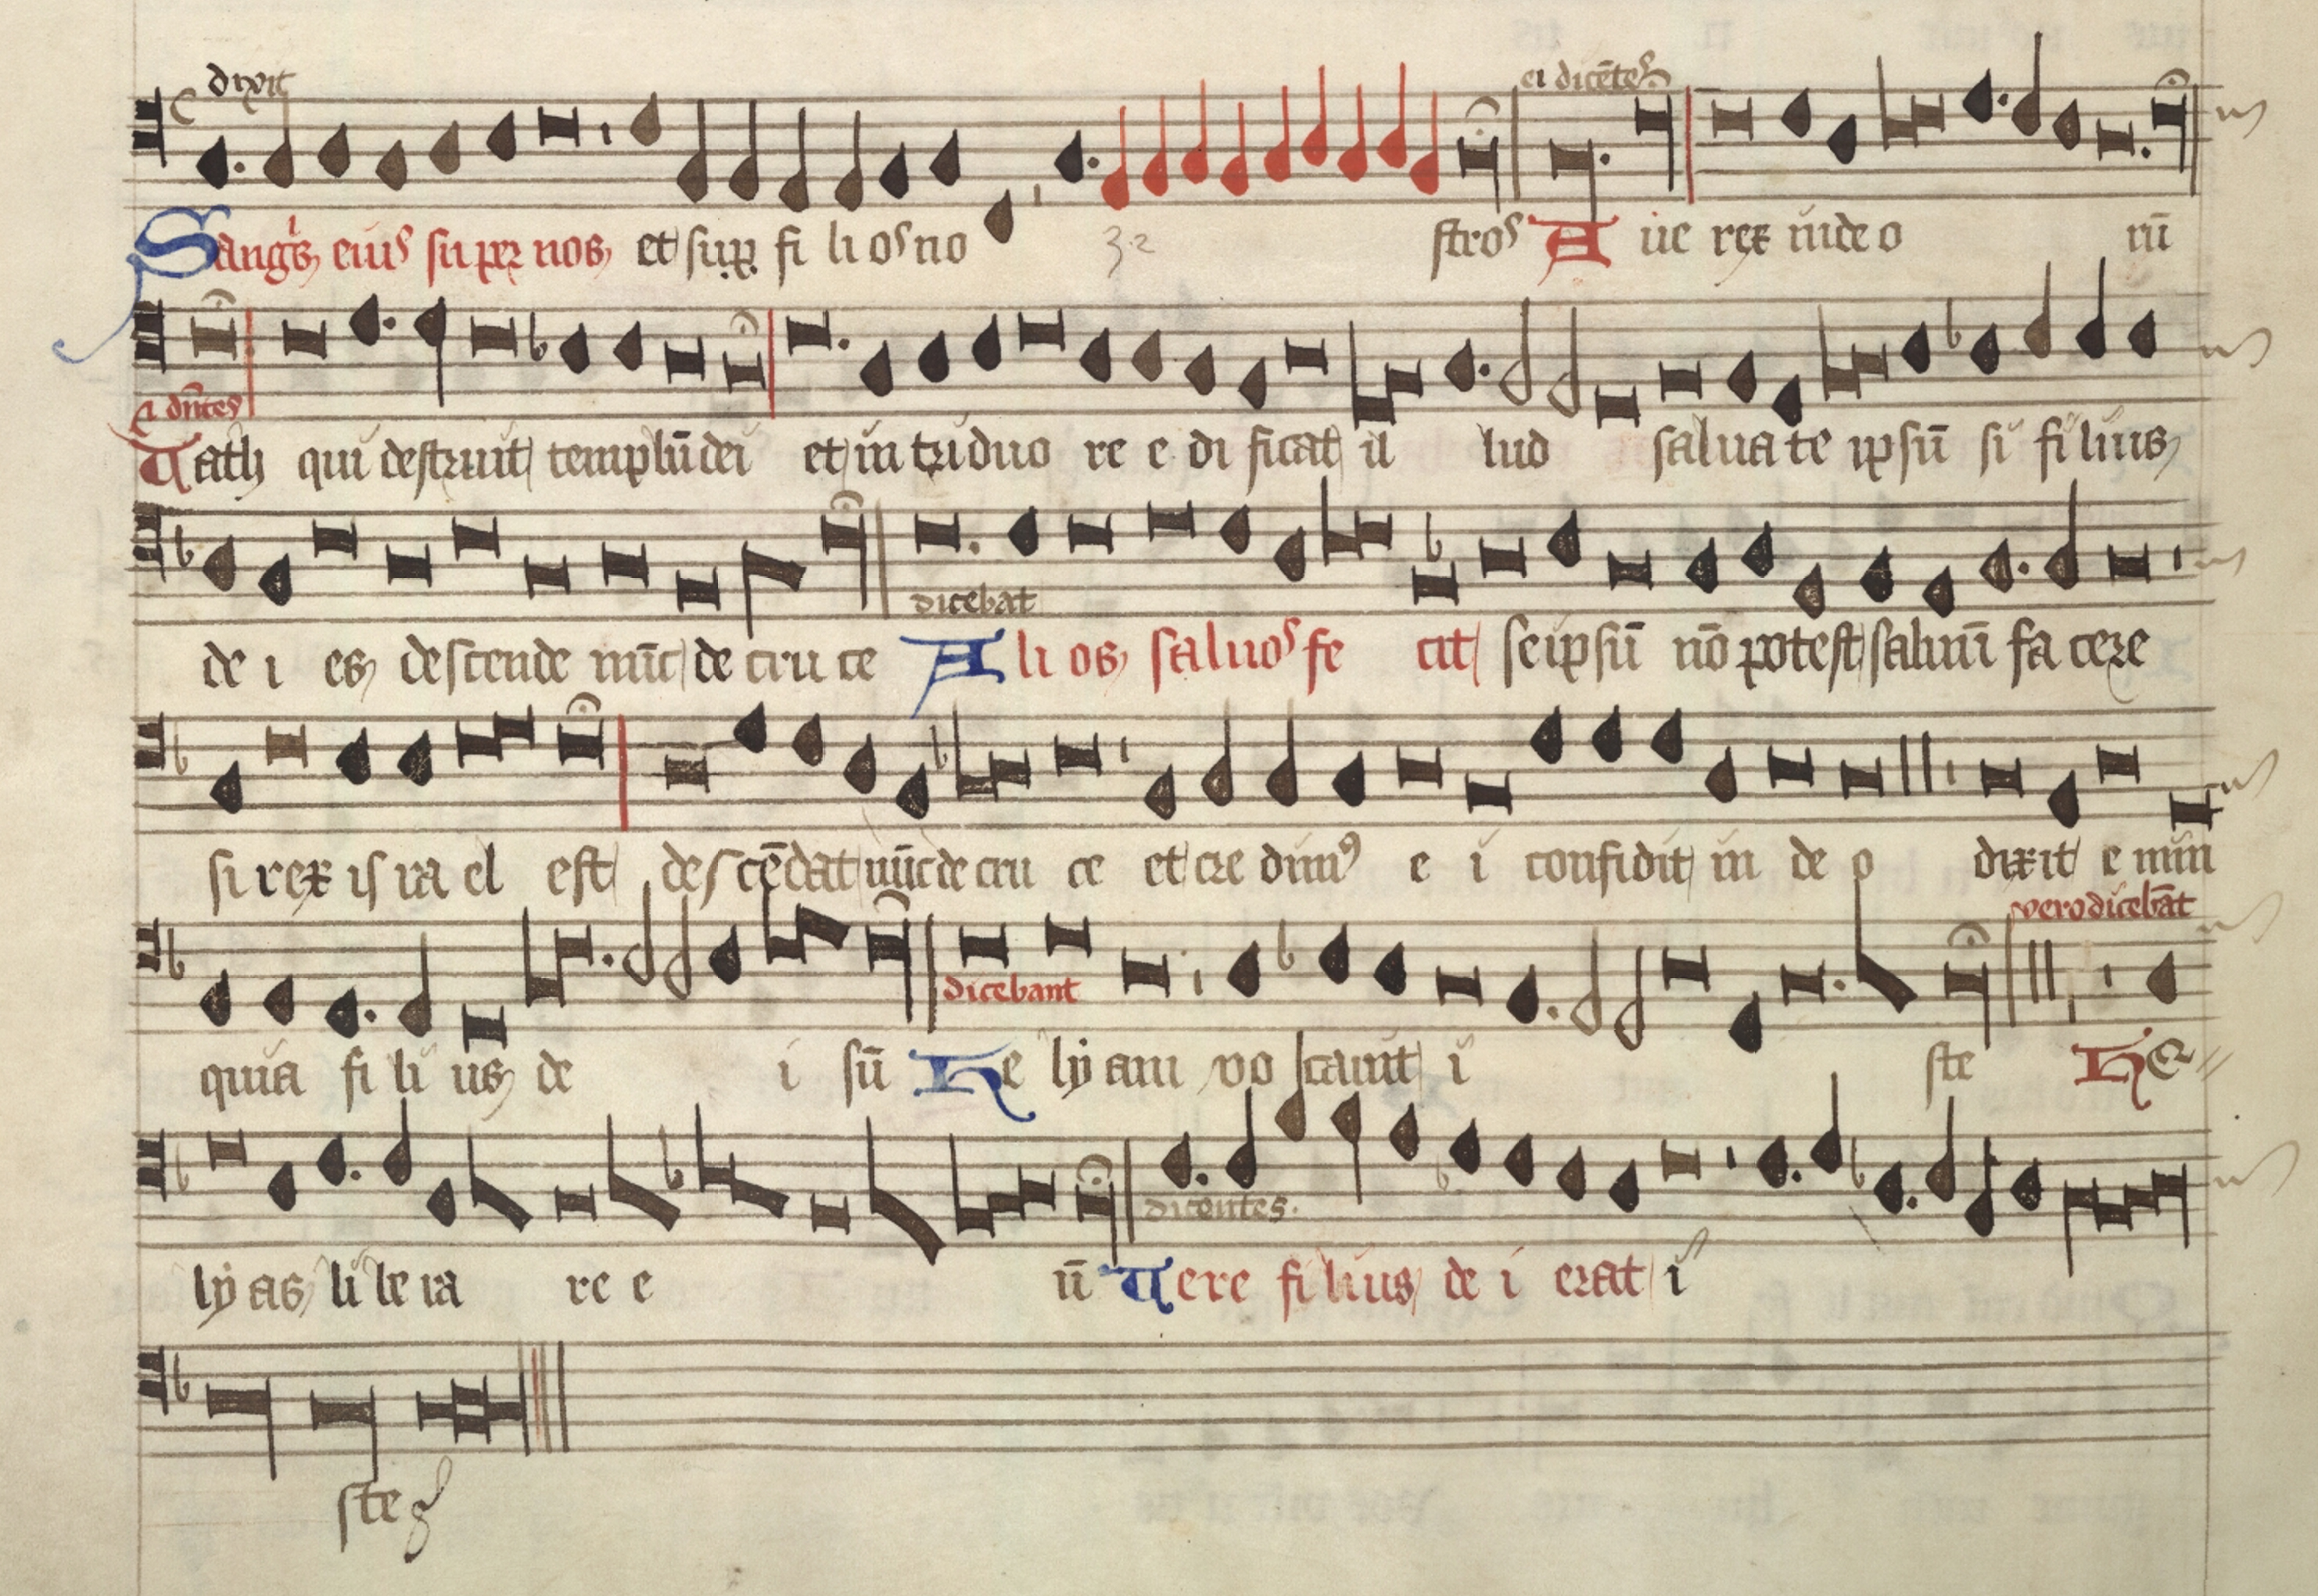 dixit ei dicētes
Sangs eius super nos et sup fi li os no 32 stros A ue rex iude o rū
ei dntes
Uath qui destruit templū dei et in triduo re e di ficat il lud salua te ipsū si filius
dicebat
de i es descende nūc de cru ce A li os saluos fe cit seipsū nō potest saluū fa cere
si rex is ra el est descēdat nūc de cru ce et cre dim9 e i confidit in de o dixit e nim
vero dicebāt
dicebant
quia fi li us de i sū He ly am vo cauit i ste He
dicentes.
ly as li le ra re e ū Uere filius de i erat i
ste